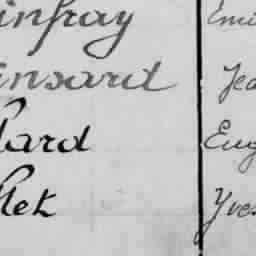 infray Emi
insard Jea
lard Eug
llek Yves